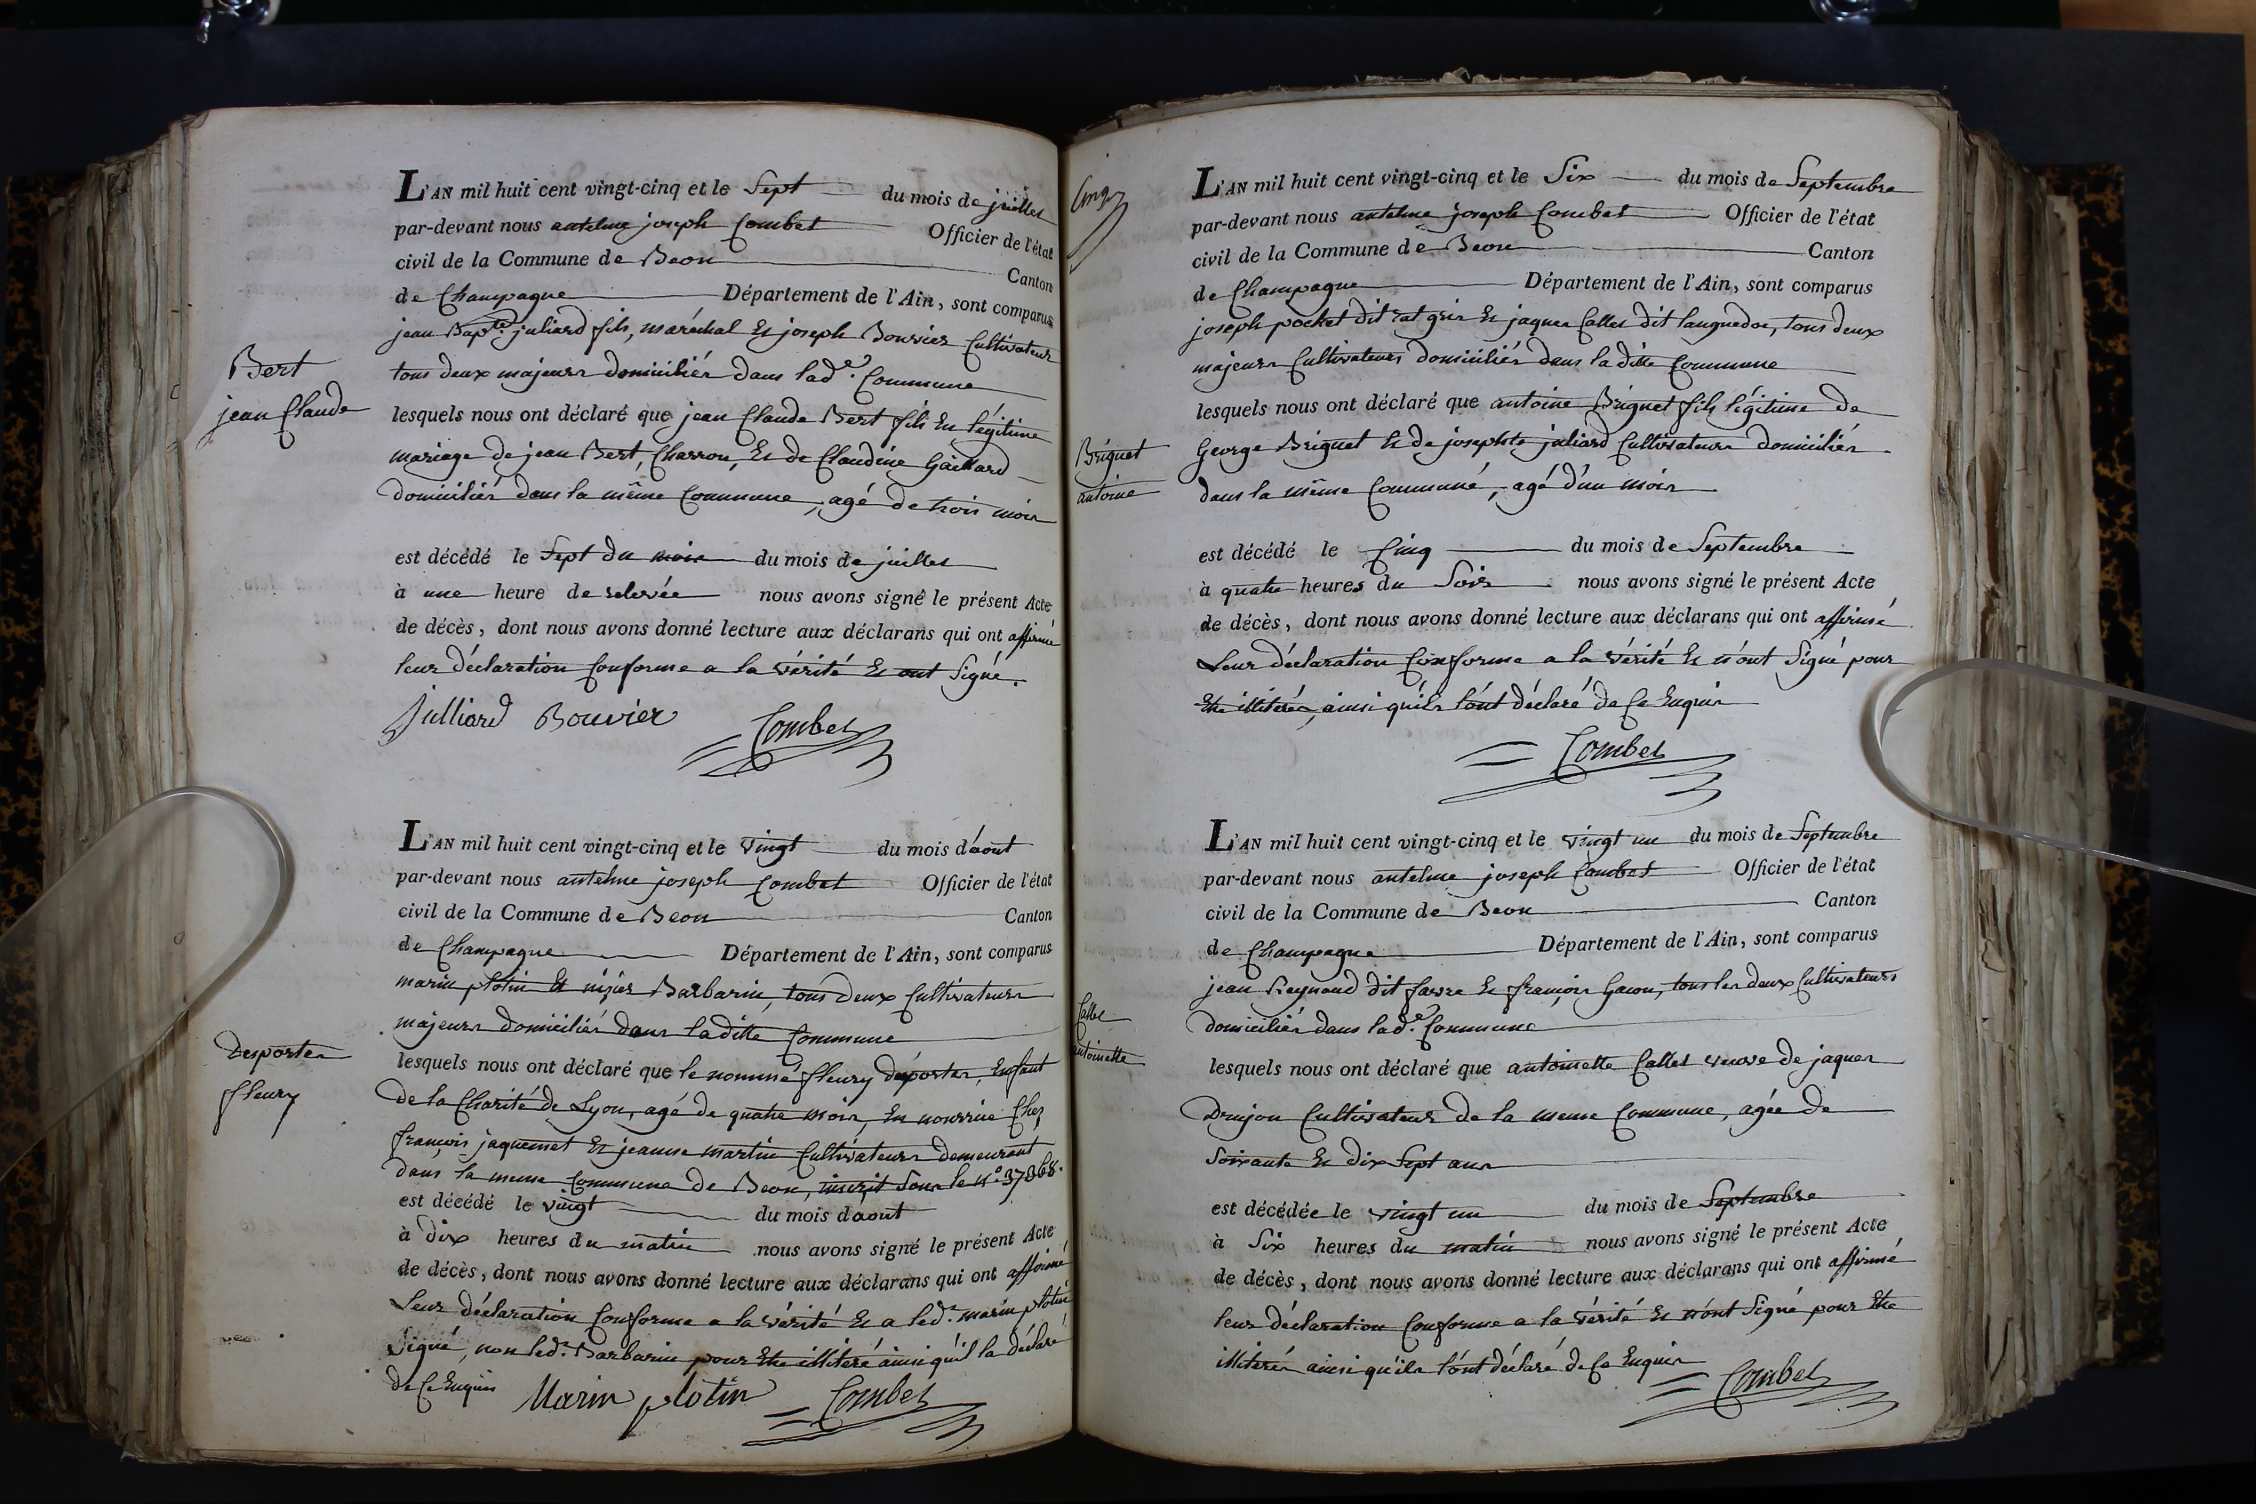 L'AN mil huit cent vingt-cinq et le Sept du mois de juillet
par-devant nous antelme joseph Combet Officier de l'état
civil de la Commune de Beon Canton
de Champagne Département de l'Ain, sont comparus
jean Bapte. juliard fils, maréchal Et joseph Bouvier Cultivateur
tous deux majeurs domiciliés dans lade. Commune
Bert
jean Claude
lesquels nous ont déclaré que jean Claude Bert fils En légitime
mariage de jean Bert, Charron, Et de Claudine Gaillard
domiciliés dans la même Commune, agé de trois mois
est décédé le Sept du mois du mois de juillet
à une heure de relevée nous avons signé le présent Acte
de décès, dont nous avons donné lecture aux déclarans qui ont affirmé
leur déclaration Conforme a la vérité Et ont Signé.
Julliard Bouvier Combet
L'AN mil huit cent vingt-cinq et le vingt du mois d'août
par-devant nous antelme joseph Combet Officier de l'état
civil de la Commune de Beon Canton
de Champagne Département de l'Ain, sont comparus
marin plotin Et nizier Barbarin, tous deux Cultivateurs
majeurs domiciliés dans laditte Commune
Desportes
fleury
lesquels nous ont déclaré que le nommé fleury désportes, Enfant
de la Charité de Lyon, agé de quatre mois, En nourrice Chez
françois jaquemet Et jeanne martin Cultivateurs demeurant
dans la meme Commune de Beon, inscrit Sous le N° 37868.
est décédé le vingt du mois d'aout
à dix heures du matin nous avons signé le présent Acte
de décès, dont nous avons donné lecture aux déclarans qui ont affirmé
Leur déclaration Conforme a la vérité Et a led. marin plotin
Signé, non led. Barbarin pour Etre illiteré ainsi qu'il la déclaré
de Ce Enquis Marin plotin Combet
Cinq
L'AN mil huit cent vingt-cinq et le Six du mois de Septembre
par-devant nous antelme joseph Combet Officier de l'état
civil de la Commune de Beon Canton
de Champagne Département de l'Ain, sont comparus
joseph pochet dit rat gris Et jaques Callet dit languedoc, tous deux
majeurs Cultivateurs domiciliés dans la ditte Commune
lesquels nous ont déclaré que antoine Briguet fils légitime de
Briguet
antoine
George Briguet Et de josephte juliard Cultivateurs domiciliés
dans la même Commune, agé d'un mois
est décédé le Cinq du mois de Septembre
à quatre heures du Soir nous avons signé le présent Acte
de décès, dont nous avons donné lecture aux déclarans qui ont affirmé
Leur déclaration Conforme a la vérité Et n'ont Signé pour
Etre illiterés, ainsi qu'ils l'ont déclaré de Ce Enquis
Combet
L'AN mil huit cent vingt-cinq et le vingt un du mois de Septembre
par-devant nous antelme joseph Combet Officier de l'état
civil de la Commune de Beon Canton
de Champagne Département de l'Ain, sont comparus
jean Reynaud dit favre Et françois Gacon, tous les deux Cultivateurs
domiciliés dans lade. Commune
Callet
antoinette
lesquels nous ont déclaré que antoinette Callet veuve de jaques
Drujon Cultivateur de la meme Commune, agée de
Soixante Et dix Sept ans
est décédée le vingt un du mois de Septembre
à Six heures du matin nous avons signé le présent Acte
de décès, dont nous avons donné lecture aux déclarans qui ont affirmé
leur déclaration Conforme a la vérité Et n'ont Signé pour Etre
illiterés ainsi qu'ils l'ont déclaré de Ce Enquis Combet